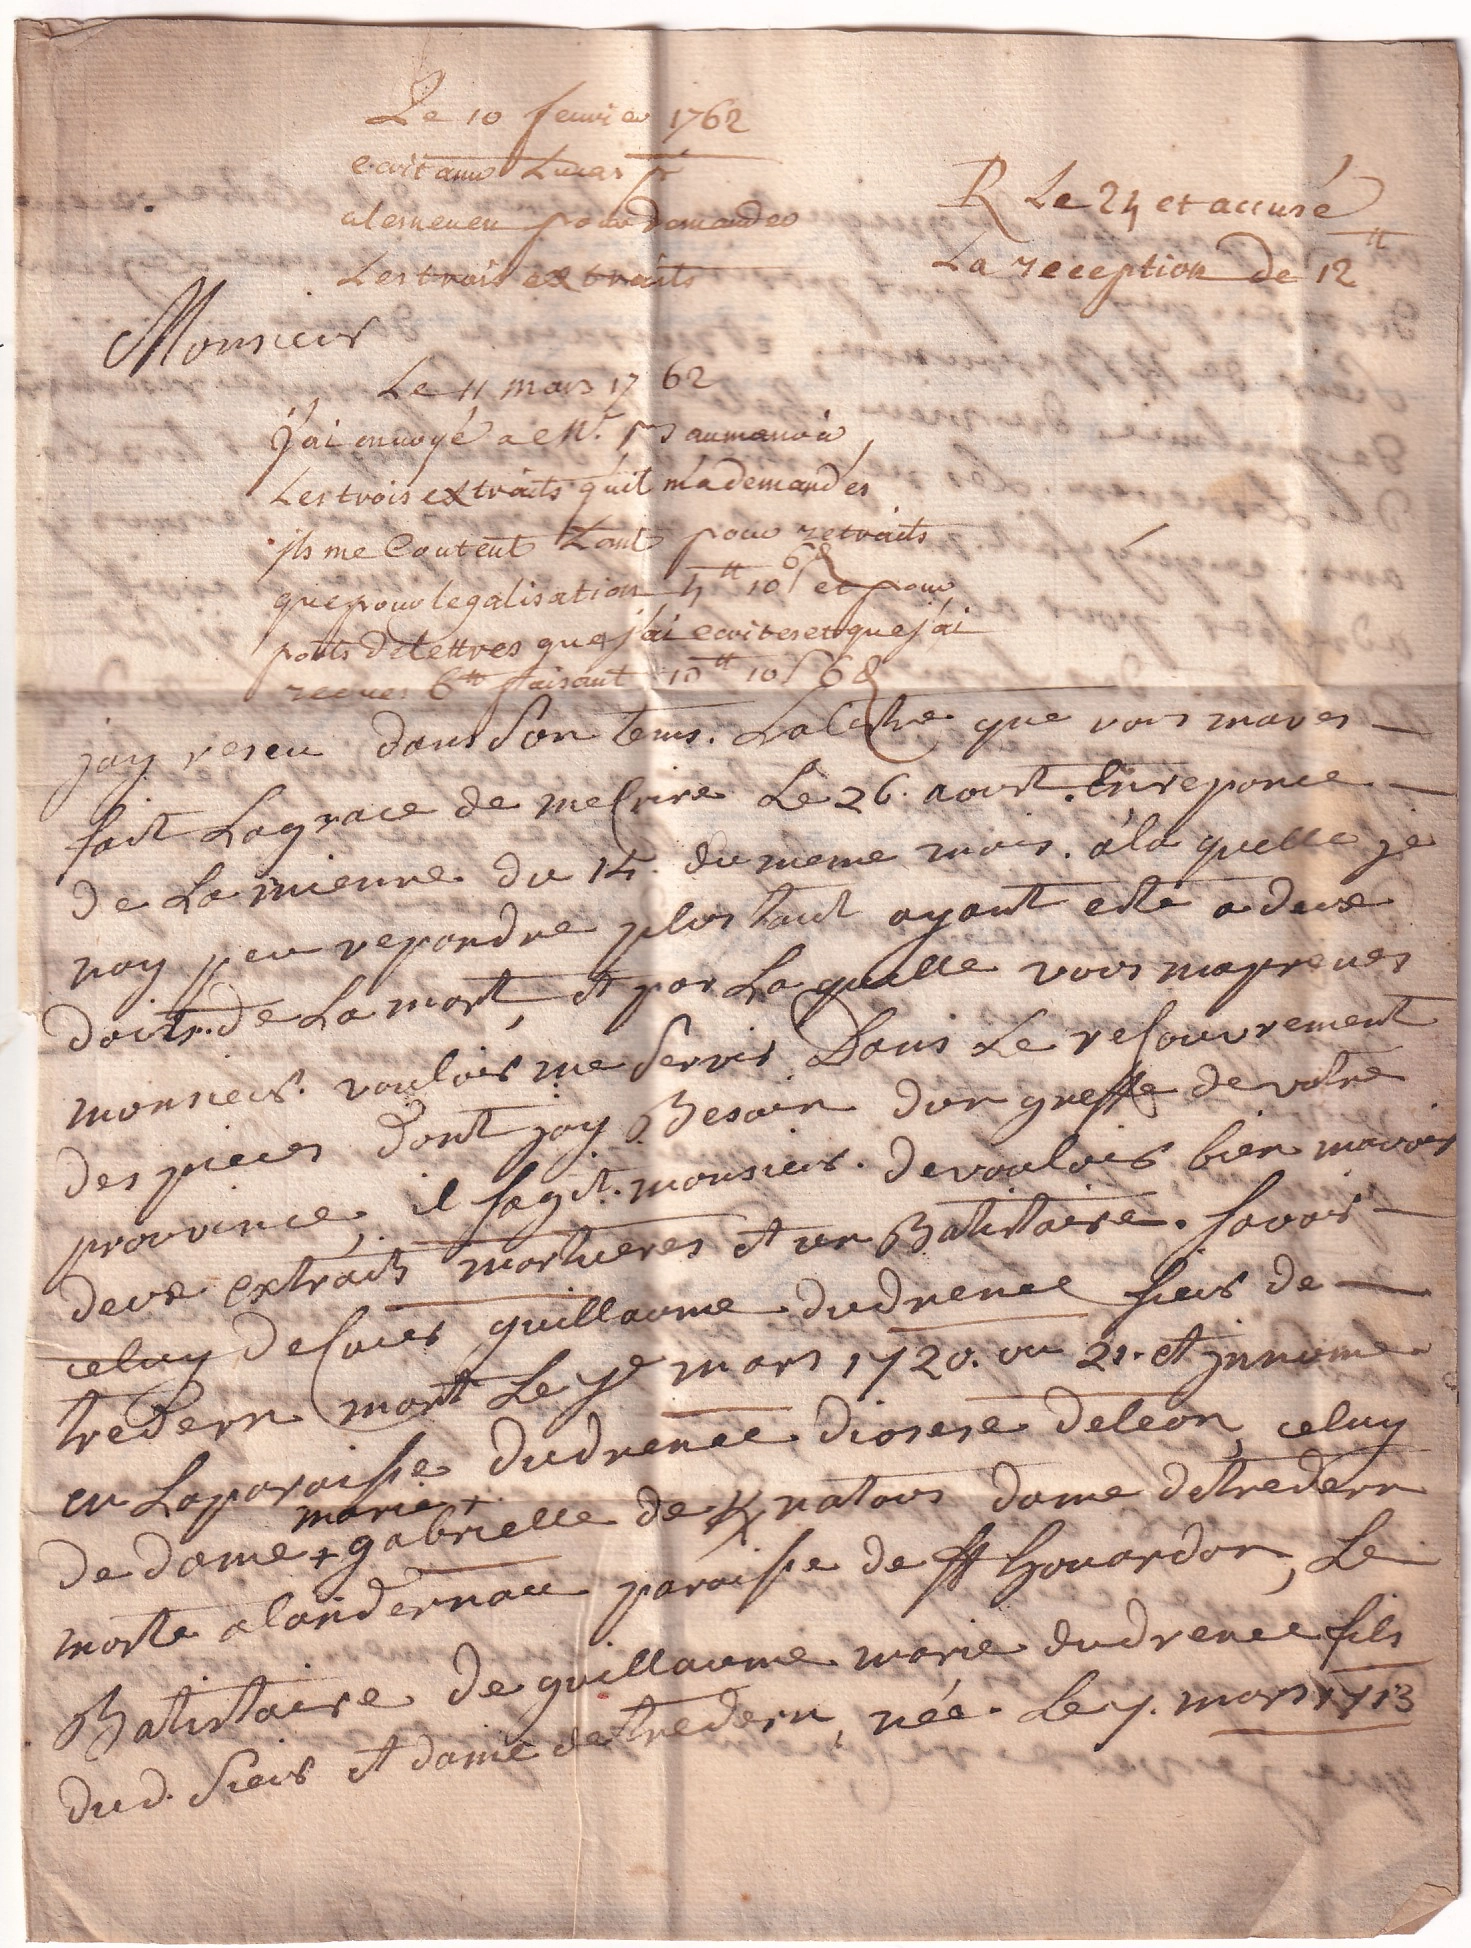 Le 10 fevrier 1762
ecrit a mr Lucas pr
a lesneven pour demander
Les trois extraits
R Le 24 et accusé
La reception de 12 tt
Monsieur
Le 11 mars 1762
j'ai envoyé a Mr.
Les trois extraits qu'il m'a demandés
ils me Coutent tant pour retraits
que pour legalisation 4 tt 10 s 6 d et pour
ports de lettres que j'ai ecrites et que j'ai
recues 6 tt faisant 10 tt 10 s 6 d
jay reseu dans son tems. La letre que vous maves
fait La grace de mecrire Le 26. aout. En reponce
de La mienne du 14. du meme mois. a la quelle je
nay peu repondre plus taut ayant esté a deux
doits. de La mort, et par La quelle vous maprenes
monsieur. vouloir me servir Dans Le recouvrement
des pieces dont jay Besoin don greffe de votre
province, il sagit. monsieur. de vouloir bien mavoir
deux extraits mortueres et un Batistaire. savoir
celuy de Guillaume dudrenec sieur de
trédern mort Le 7e mars 1720. ou 21. et jnnume
en La paroisse dudrenec diosese de leon, celuy
de dame + marie + gabrielle de K natous dame de trédern
morte a landernau paroisse de st houardon, Le
Batistaire de guillaume marie dudrenec fils
dud. sieur et dame de tredern, née. Le 7. mars 1713